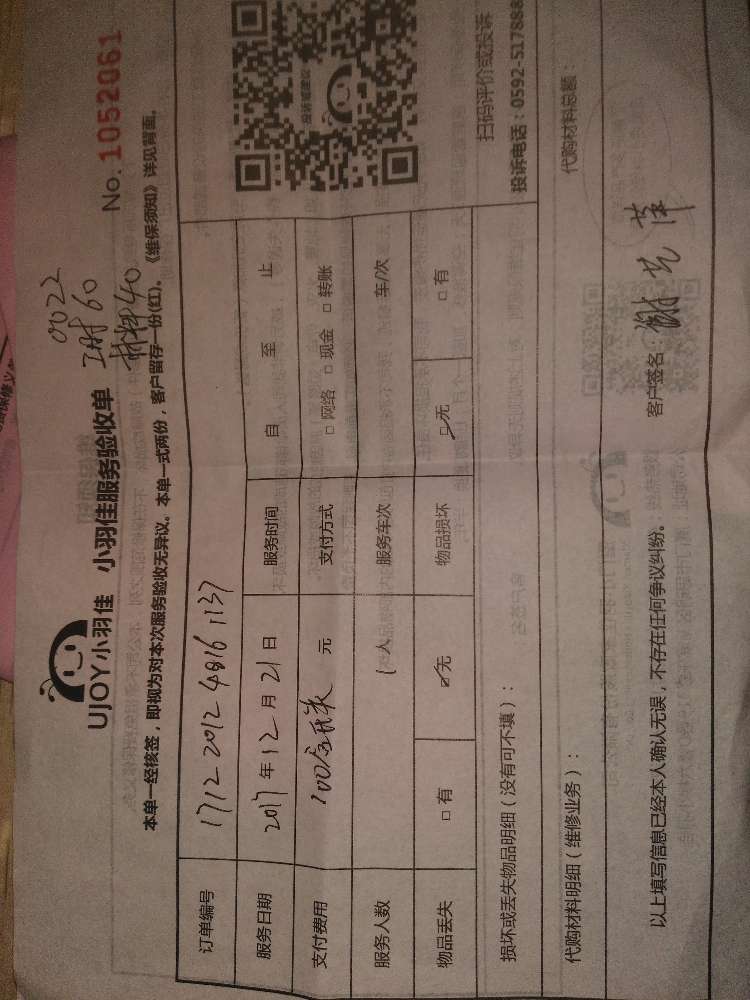 0022
工时60
材料40
UJOY小羽佳 小羽佳服务验收单 No. 1052061
本单一经核签，即视为对本次服务验收无异议。本单一式两份，客户留存一份(红)。《维保须知》详见背面。
订单编号 1712 2012 4816 1137
服务日期 2017年12月21日 服务时间 自 至 止
支付费用 100 元 支付方式 □网络 □现金 □转账
服务人数 1人 服务车次 车/次
物品丢失 □有 ☑无 物品损坏 ☑无 □有
投诉或建议
扫码评价或投诉
投诉电话：0592-517888
损坏或丢失物品明细（没有可不填）：
代购材料明细（维修业务）： 代购材料总额：
以上填写信息已经本人确认无误，不存在任何争议纠纷。 客户签名：谢艺萍